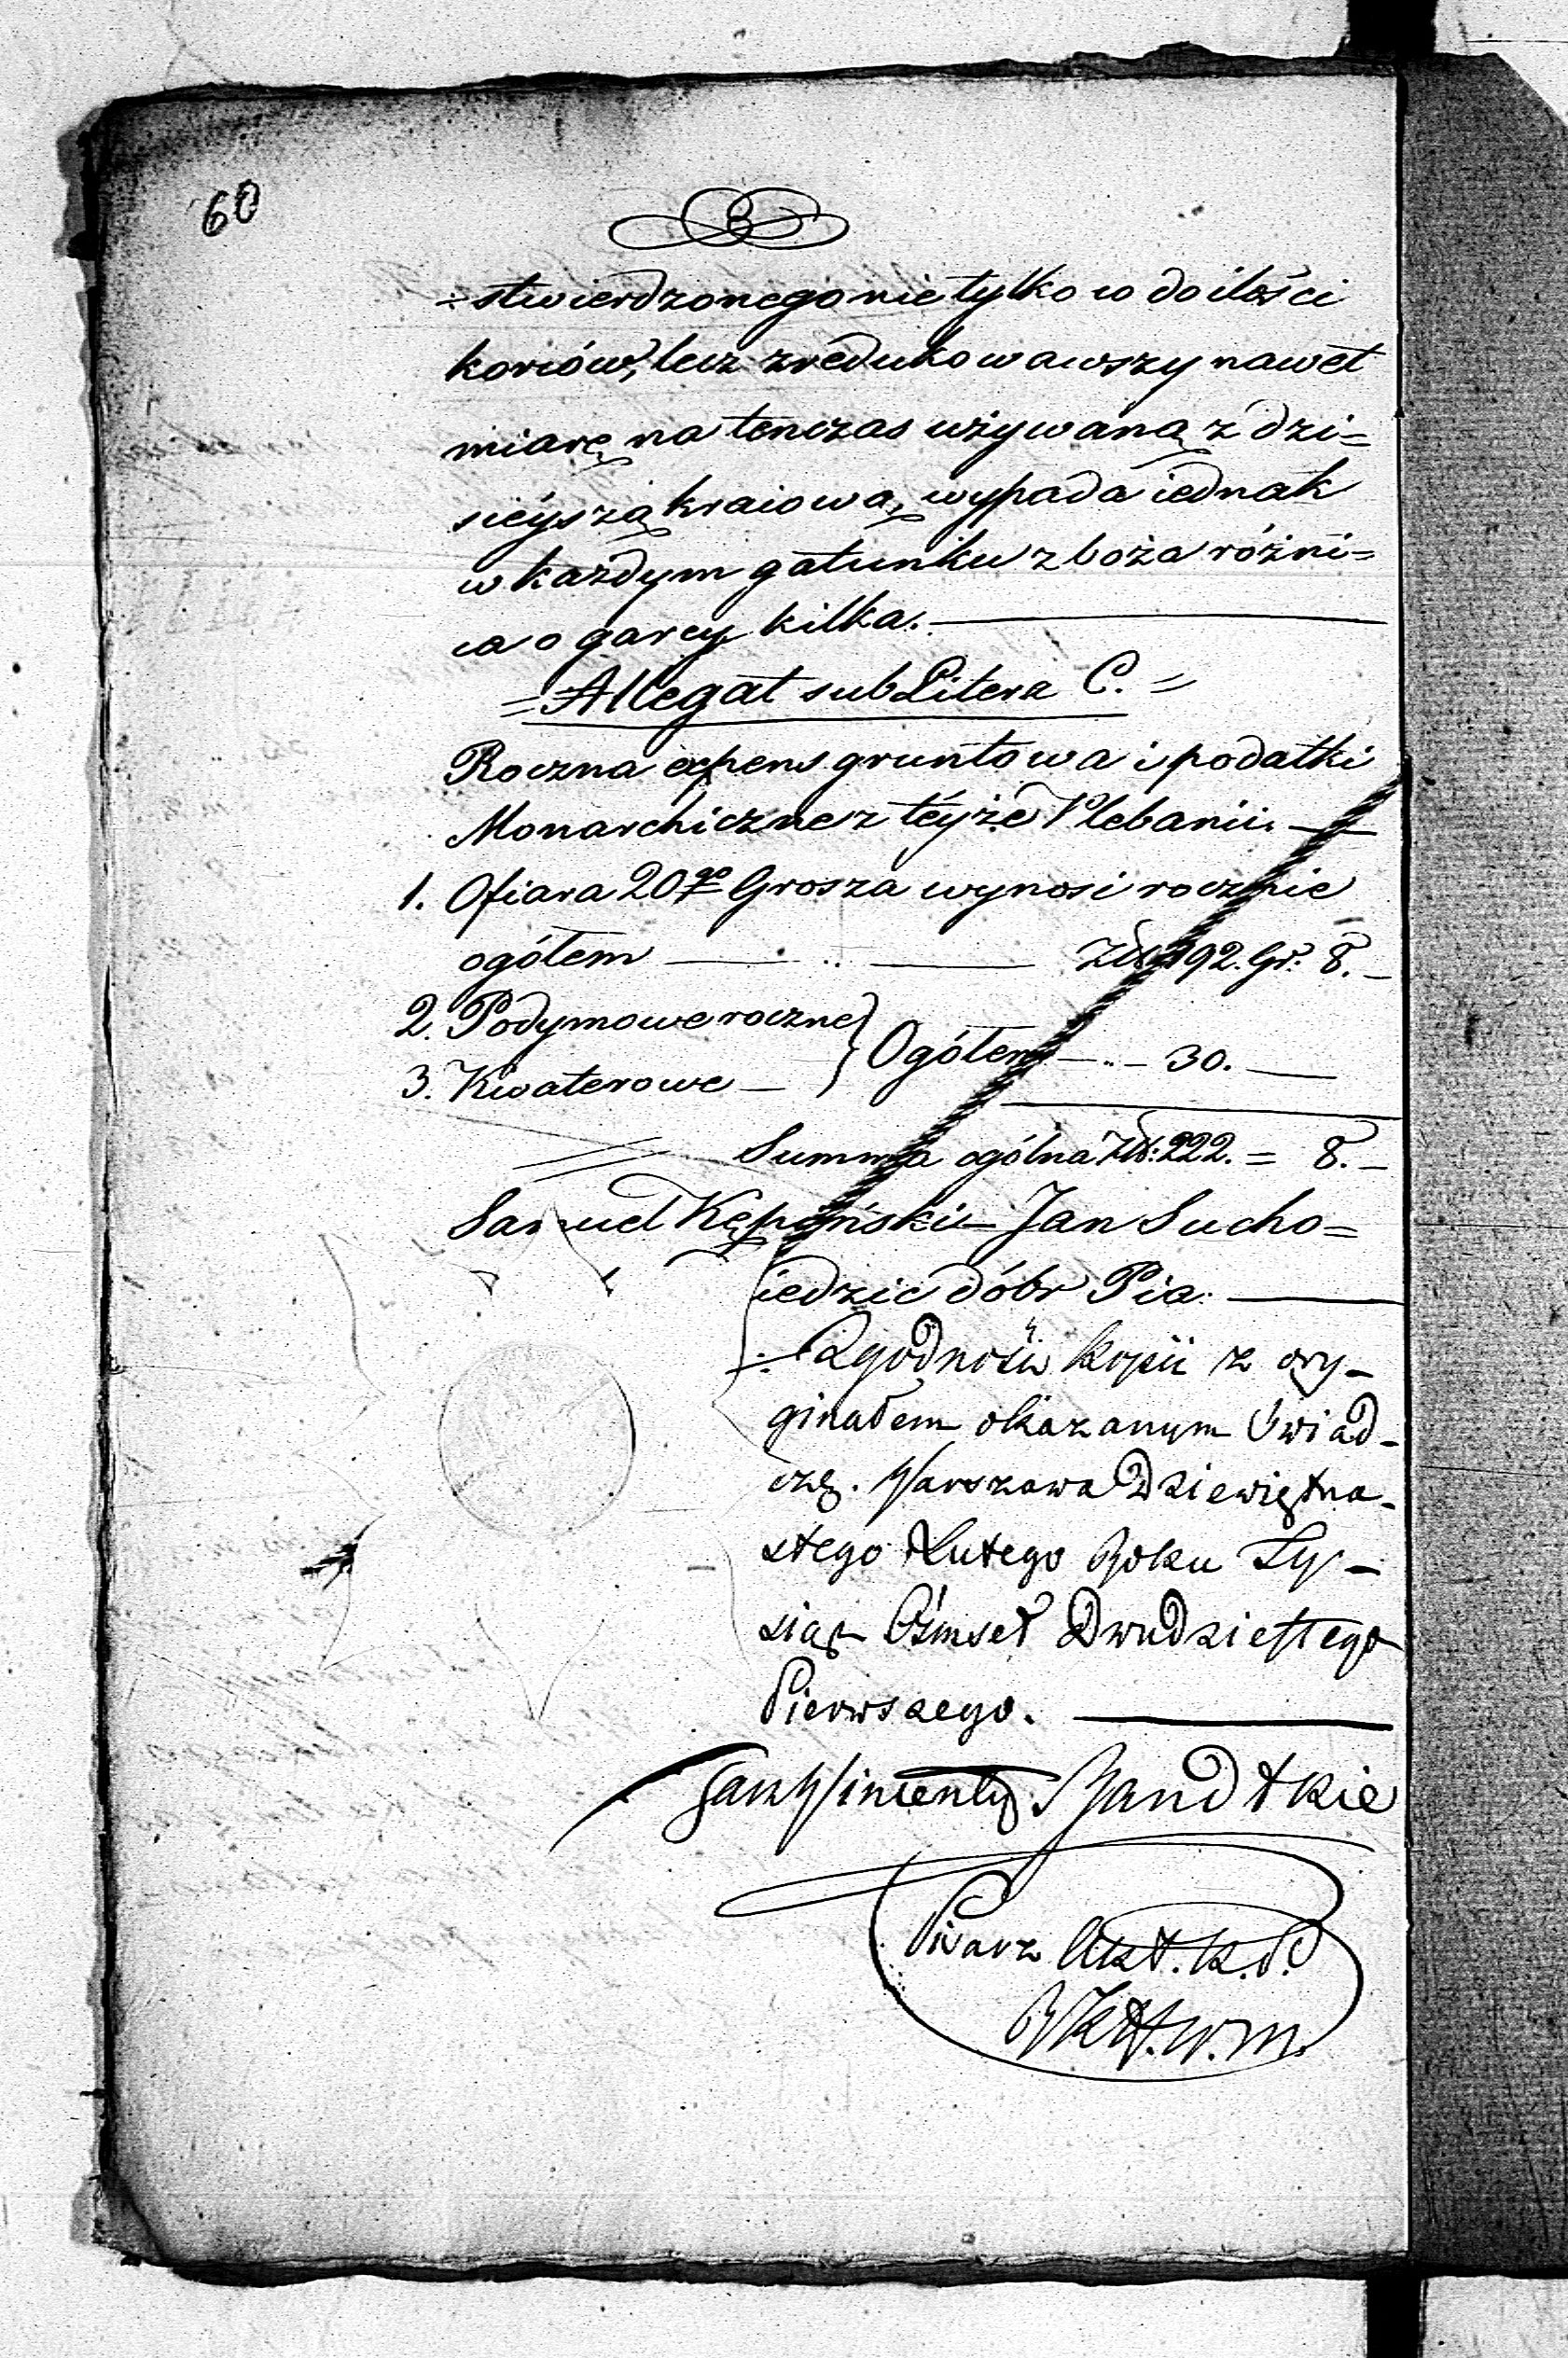 60
8
÷stwierdzonego nie tylko w do ilości
korców, lecz zredukowawszy nawet
miarę na tenczas używaną z dzi=
sieyszą kraiową, wypada iednak
w każdym gatunku zboża różni=
ca o garcy kilka.
=Allegat sub Litera C.=
Roczna expens gruntowa i podatki
Monarchiczne z téyże Plebanii.
1. Ofiara 20go Grosza wynosi rocznie
ogółem — .. — Złł 192. Gr. 8.—
2. Podymowe roczne } Ogółem — .. — 30. —
3. Kwaterowe —
Summa ogólna Złł: 222. = 8.—
Samuel Kępiński — Jan Sucho=
iedzic dóbr Pia:
Zgodność kopii z ory-
ginałem okazanym Świad-
czę. Warszawa Dziewiętna-
stego Lutego Roku Ty-
siąc Ośmset Dwudziestego
Pierwszego.
Jan Wincenty Bandtkie
Pisarz Akt. K. P.
W. M.